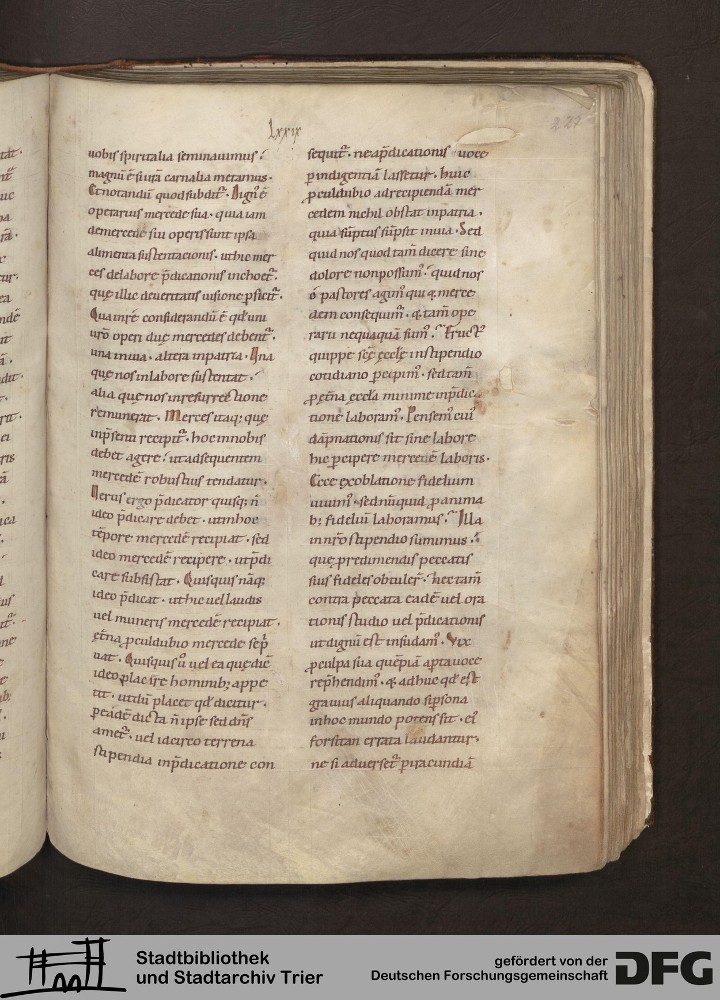 Lxxix
227
uobis spiritalia seminauimus ?
magnū ē si uṙa carnalia metamus ·
Et notandū quod subdit᷒ · Dign᷒ ē
operarius mercede sua · quia iam
demercede sui operis sunt ipsa
alimenta sustentationis · uthic mer
ces delabore p̄dicationis inchoet᷒ ·
que illic deueritatis uisione ꝑficit᷒ ·
Qua in re considerandū ē qđ uni
uṙo operi duę mercedes debent᷒ ·
una inuia · altera inpatria · Una
que nos inlabore sustentat ·
alia que nos inresurrectione
remunerat · Merces itaq; quę
inp̄senti recipit᷒ · hoc innobis
debet agere · ut adsequentem
mercedē robustius tendatur ·
Uerus ergo p̄dicator quisq; ñ
ideo p̄dicare debet · utinhoc
tēpore mercedē recipiat · sed
ideo mercedē recipere · utp̄di
care subsistat · Quisquis nāq;
ideo p̄dicat · uthic uel laudis
uel muneris mercedē recipiat ·
ęt̄na ꝑculdubio mercede sep̄
uat · Quisquis ů uel ea quę dic̄
ideo placere hominib; appe
tit · utdū placet qđ dicitur ·
ꝑ eadē dicta ñ ipse sed dñs
amet᷒ · uel idcirco terrena
stipendia inp̄dicatione con
sequit᷒ · ne ap̄dicationis uoce
ꝑ indigentiā lassetur · huic
ꝓculdubio adrecipiendā mer
cedem nichil obstat inpatria ·
quia sūptus sūpsit inuia · Sed
quid nos quod tam̄ dicere sine
dolore nonpossum᷒ · quid nos
ó pastores agim᷒ qui & merce
dem consequim᷒ · & tam̄ ope
rarii nequaquā sum᷒ · Fruct᷒
quippe scę̄ ecclę̄ instipendio
cotidiano ꝑcipim᷒ · sed tam̄
ꝓ ęt̄na eccl̄a minime inp̄dica
tione laboram᷒ · Pensem᷒ cui᷒
dāpnationis sit sine labore
hic ꝑcipere mercedē laboris ·
Ecce exoblatione fidelium
uiuim᷒ · sed nūquid ꝓ anima
b; fideliū laboramus · Illa
in nṙo stipendio sumimus ·
quę ꝓredimendis peccatis
suis fideles obtuler̄ · nec tam̄
contra peccata eadē uel ora
tionis studio uel p̄dicationis
ut dignū est insudam᷒ · Vix
ꝓ culpa sua quēpiā apta uoce
rep̄hendim᷒ · & adhuc qđ est
grauius aliquando si ꝑsona
inhoc mundo potens sit · ei᷒
forsitan errata laudantur ·
ne si aduerset᷒ ꝑ iracundiā
Stadtbibliothek
und Stadtarchiv Trier
gefördert von der
Deutschen Forschungsgemeinschaft
DFG